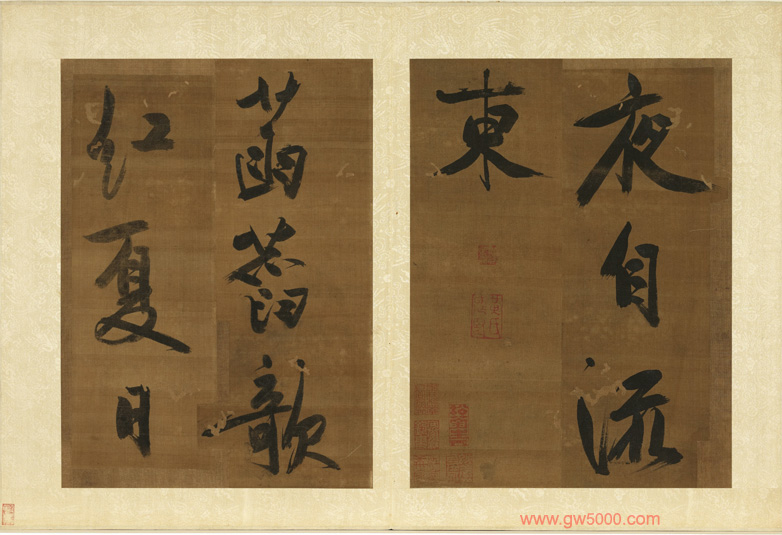 夜自流
東
菡萏歌
紅夏日
www.gw5000.com